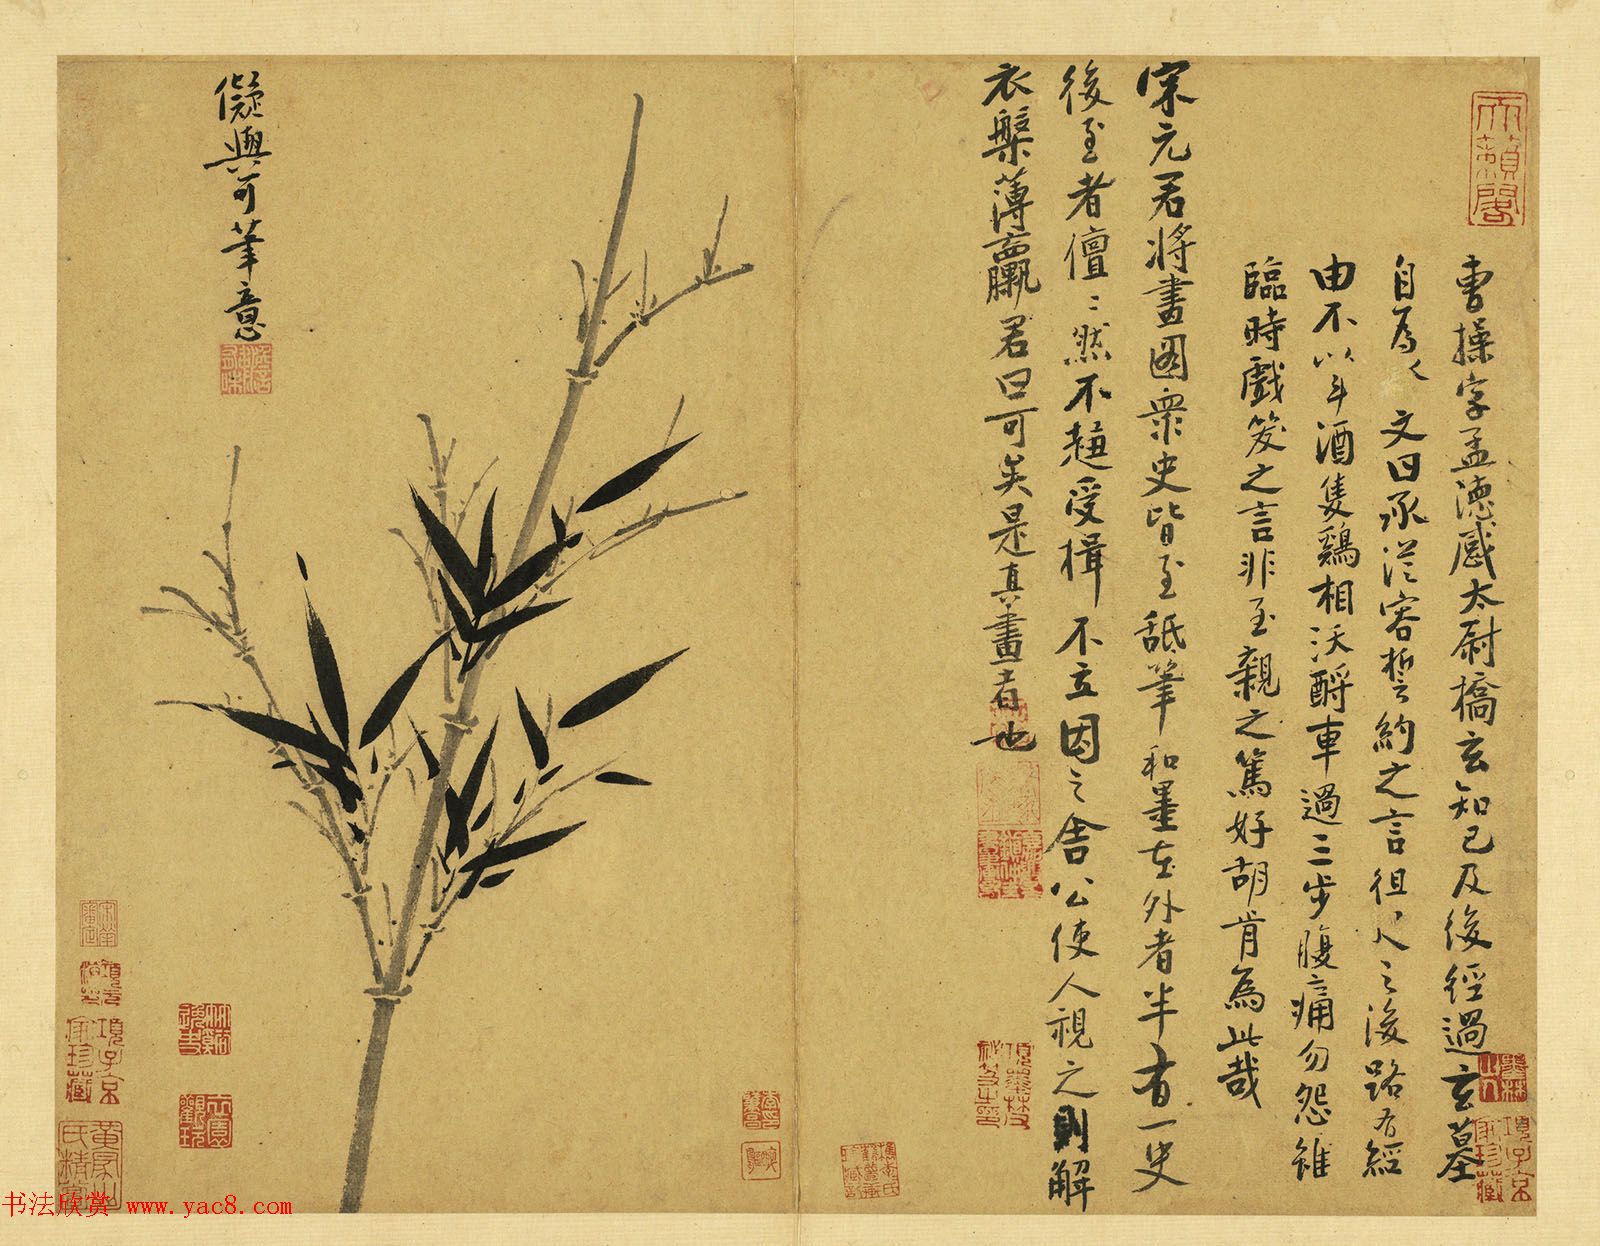 天籟閣
曹操字孟德感太尉橋玄知己及後經過玄墓
自為文曰承從容誓約之言徂之後路有經
由不以斗酒隻鷄相沃酹車過三步腹痛勿怨雖
臨時戲笑之言非至親之篤好胡肯為此哉
宋元君將畫圖衆史皆至舐筆和墨在外者半有一史
後至者儃〻然不趨受揖不立因之舍公使人視之則解
衣槃薄臝君曰可矣是真畫者也
儗與可筆意
項子京家珍藏
项子京家珍藏
书法欣赏 www.yac8.com